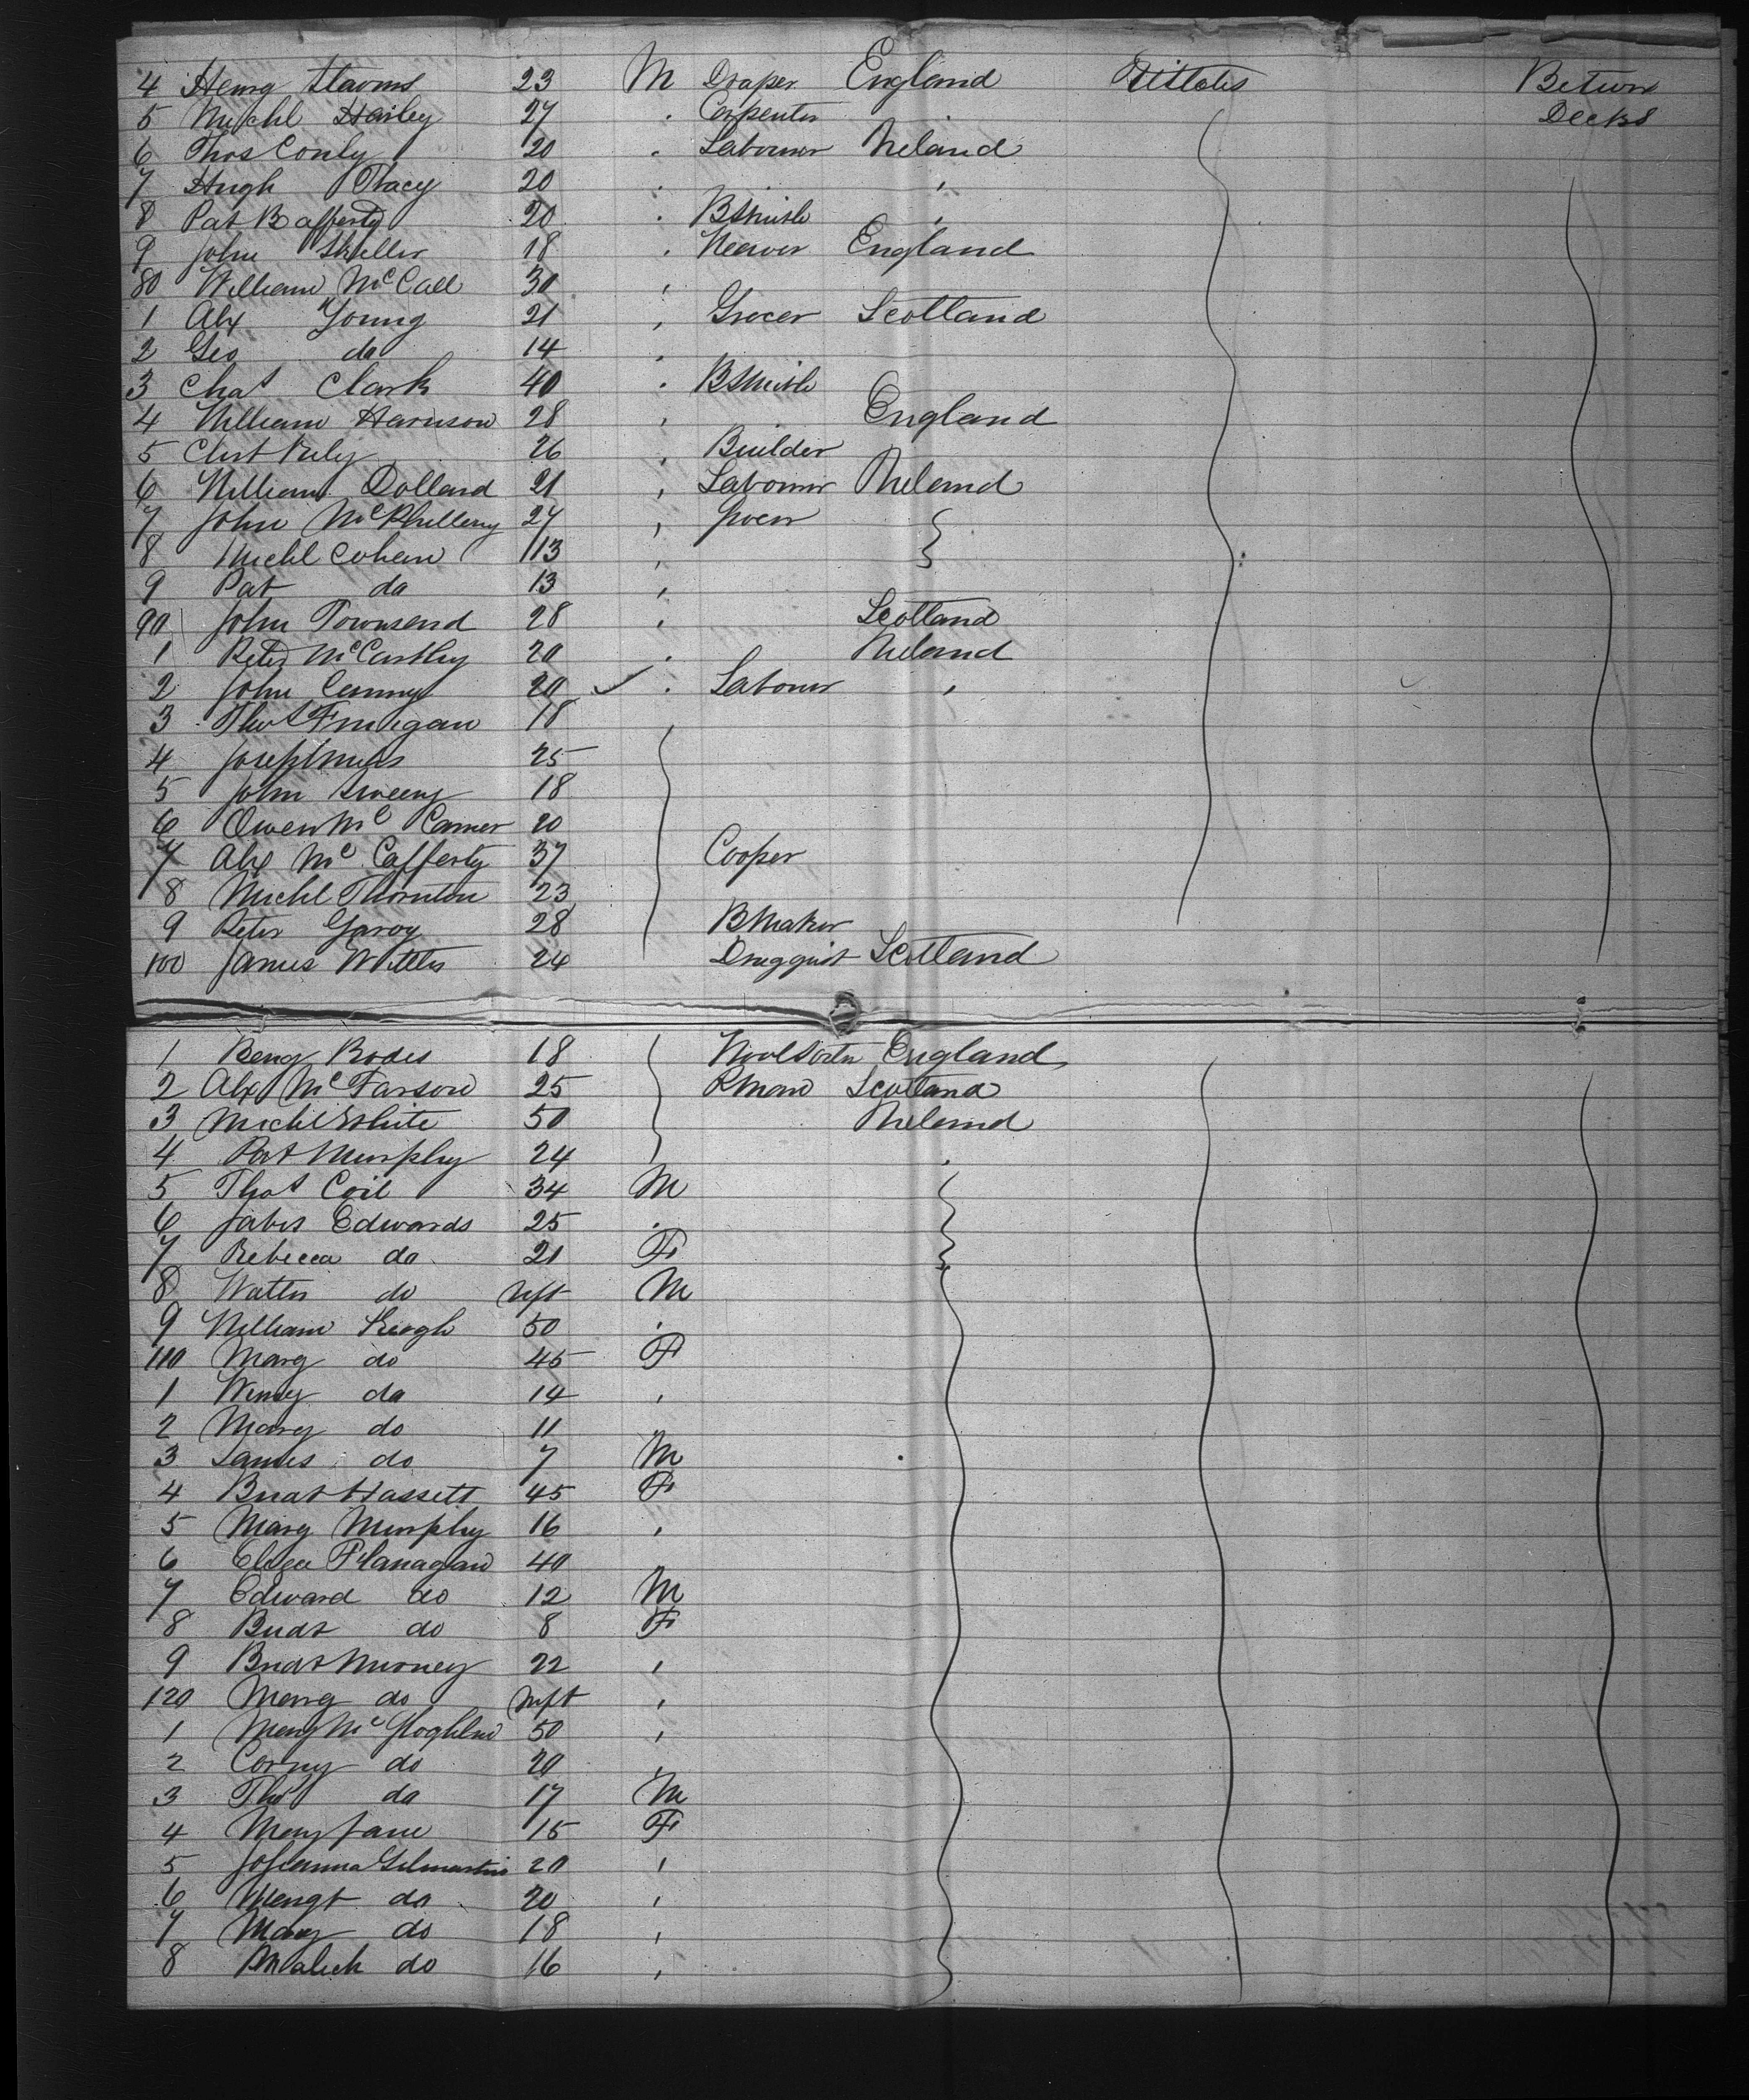 4 Henry Stavms 23 M Draper England UStates Betwn
5 Michl Harley 27 . Carpenter Decks
6 Thos Conly 20 . Labourer Ireland
7 Hugh Tracy 20 . ,
8 Pat Rafferty 20 . BSmith ,
9 John Skeller 18 . Weaver England
80 William McCall 30 ,
1 Alx Young 21 , Grocer Scotland
2 Geo do 14 ,
3 Chas Clark 40 . BSmith
4 William Harrison 28 , England
5 26 , Builder
6 William Dolland 21 , Labourer Ireland
7 John 27 , Grocer
8 Michl Cohen 13 ,
9 Pat do 13 ,
90 John Townsend 28 . Scotland
1 Peter McCarthy 20 . Ireland
2 John Canny 20 ✓ . Labourer ,
3 Thos Finnigan 18
4 Joseph 25
5 John Sweeny 18
6 Owen Mc 20
7 Alx McCafferty 37 Cooper
8 Michl Thornton 23
9 Peter Garvy 28 BMaker
100 James Watters 24 Druggist Scotland
1 Benj Rodes 18 Woolsorter England
2 Alx McFarson 25 Scotland
3 Michl White 50 Ireland
4 Pat Murphy 24 .
5 Thos Coil 34 M
6 Jabes Edwards 25 .
7 Rebecca do 21 F
8 Walter do inft M
9 William Keogh 50 .
110 Mary do 45 F
1 Winny do 14 ,
2 Mary do 11 ,
3 James do 7 M
4 Bridt Hassett 45 F
5 Mary Murphy 16 ,
6 Eliza Flanagan 40
7 Edward do 12 M
8 Bridt do 8 F
9 Bridt Murney 22 ,
120 Mary do inft ,
1 Mary McGloghlin 50 ,
2 Corny do 20 ,
3 Thos do 17 M
4 Mary Jane 15 F
5 Johanna Gilmartin 20 ,
6 Margt do 20 ,
7 Mary do 18 ,
8 do 16 ,